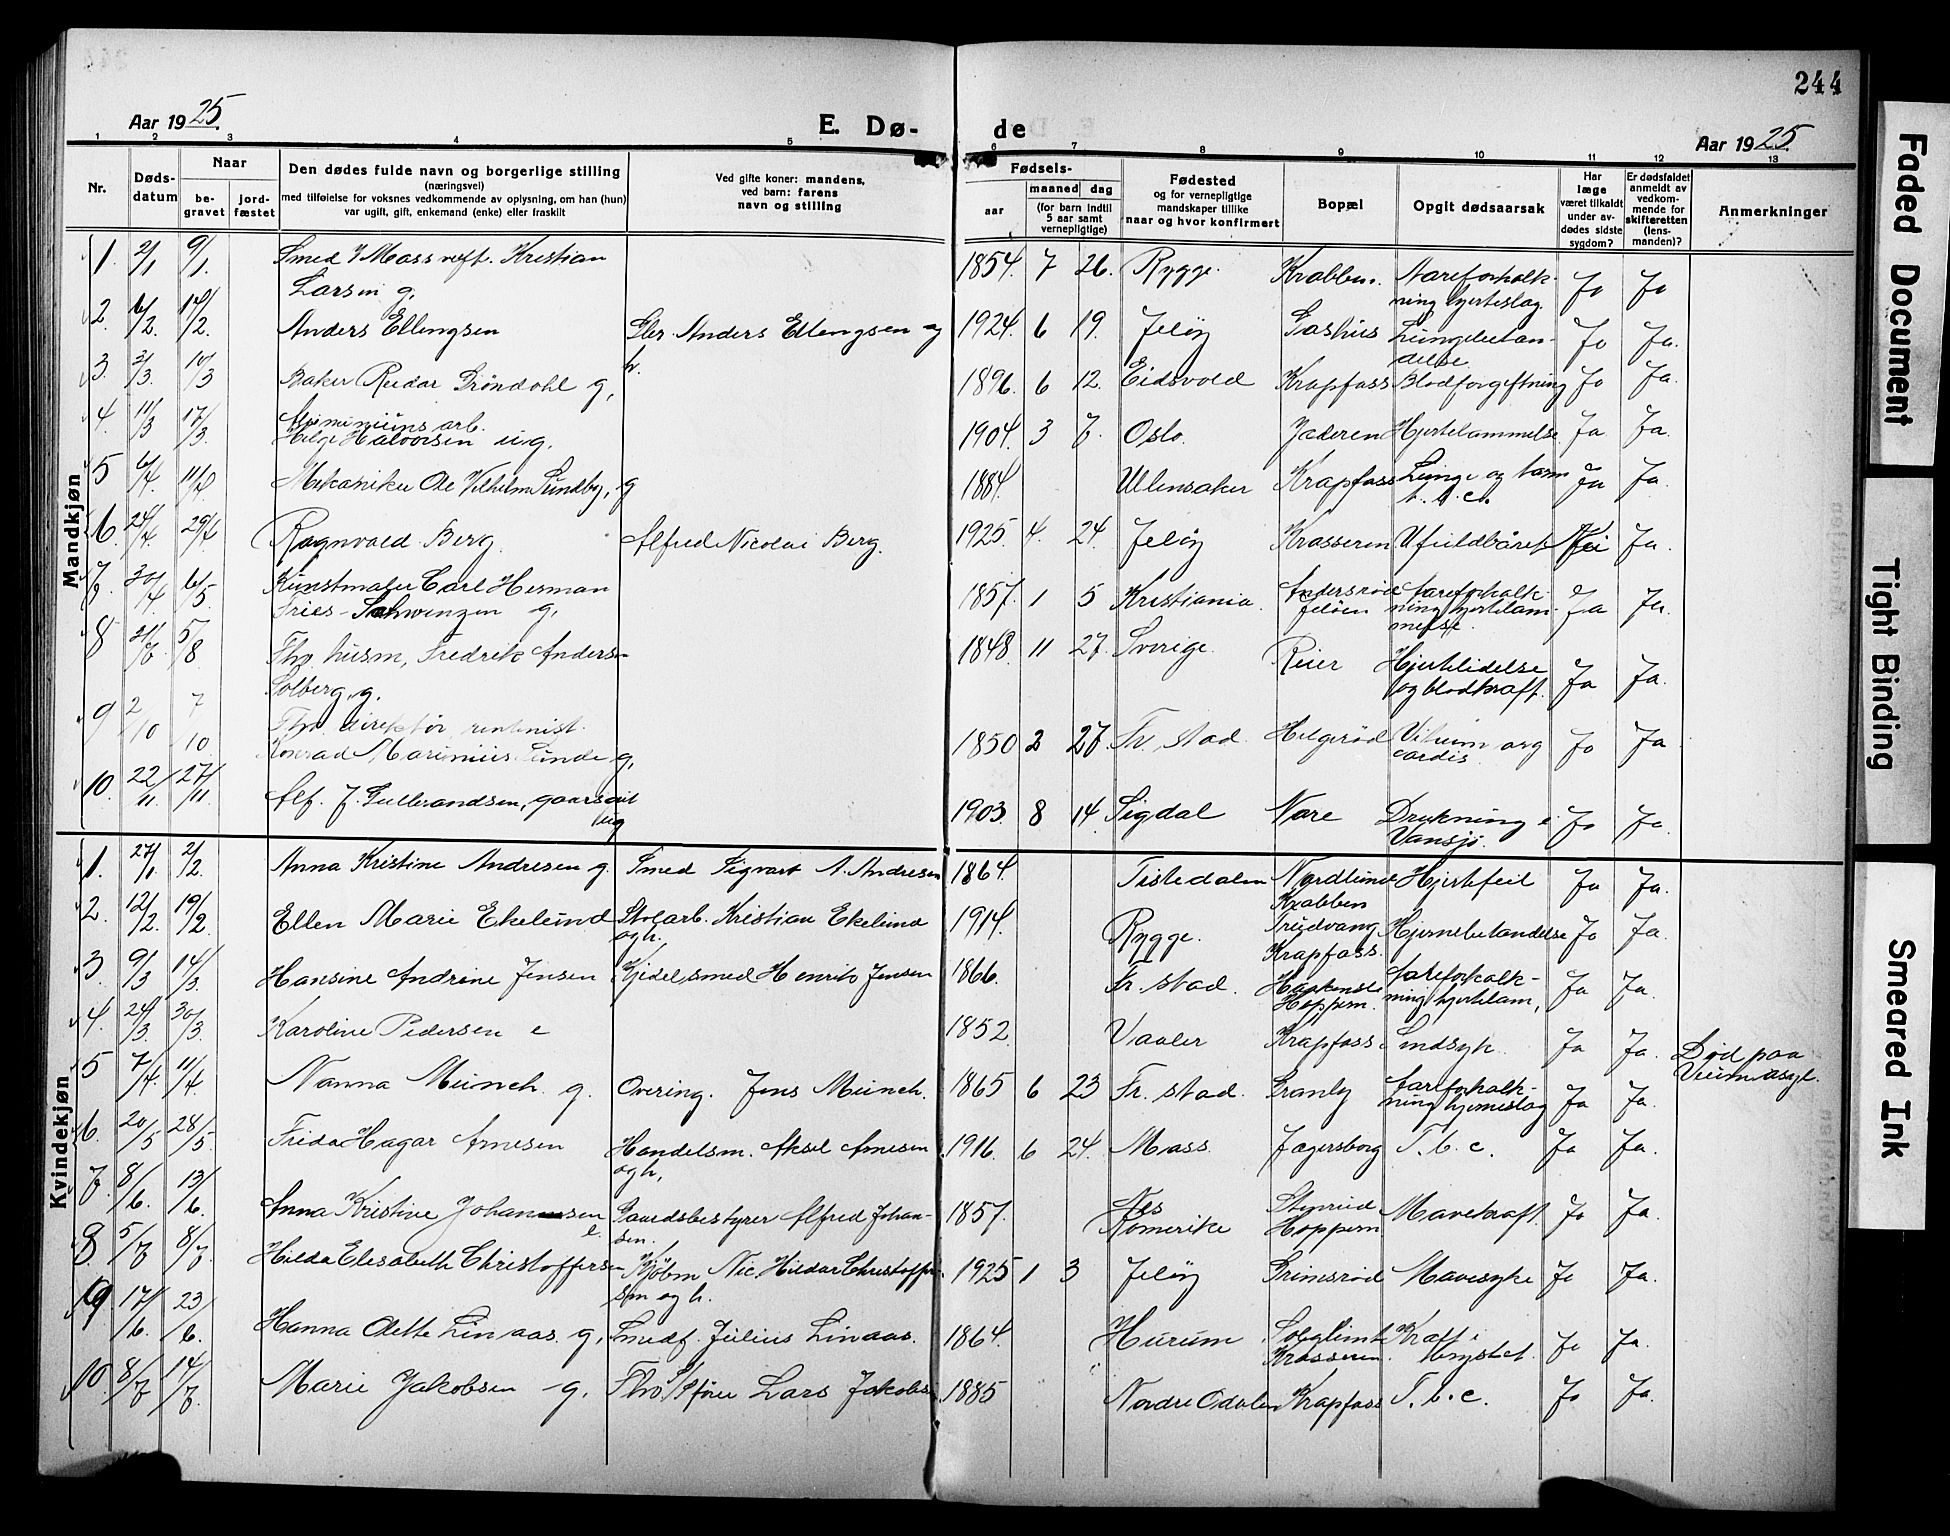 244
Aar 1925. E. Dø- de Aar 1925.
1 2 3 4 5 6 7 8 9 10 11 12 13
Nr. Døds-datum Naar be-gravet jord-fæstet Den dødes fulde navn og borgerlige stilling (næringsvei) med tilføielse for voksnes vedkommende av oplysning, om han (hun) var ugift, gift, enkemand (enke) eller fraskilt Ved gifte koner: mandens, ved barn: farens navn og stilling Fødsels- aar maaned dag (for barn indtil 5 aar samt vernepligtige) Fødested og for vernepligtige mandskaper tillike naar og hvor konfirmert Bopæl Opgit dødsaarsak Har læge været tilkaldt under av-dødes sidste sygdom? Er dødsfaldet anmeldt av vedkom-mende for skifteretten (lens-manden)? Anmerkninger
Mandkjøn
1. 2/1 9/1. Smed Kristian Larsen g. 1854. 7 26. Rygge. Krabben. Aareforkalk-ning hjerteslag. Ja Ja
2. 6/2. 17/2. Anders Ellingsen Anders Ellingsen og h. 1924. 6 19. Jeløy Gashus Lungebetæn-delse Ja Ja.
3. 3/3. 10/3 Baker Reidar Grøndahl g, 1896. 6 12. Eidsvold Krapfoss Blodforgiftning Ja Ja.
4. 11/3 17/3. Aluminiums arb. Helge Halvorsen ug. 1904. 3 7. Oslo. Jæderen Hjertelammelse Ja Ja.
5 6/4. 11/4 Mekaniker Ole Vilhelm Sundby, g 1884. Ullensaker Krapfoss Lunge og tarm t.b.c. Ja Ja.
6. 24/4. 29/4 Ragnvald Berg. Alfred Nicolai Berg. 1925. 4. 24. Jeløy Krosseren Ufuldbåret Nei Ja.
7 30/4 6/5. Kunstmaler Carl Herman Fries-Schwenzen g, 1857. 1 5 Kristiania. Andersrød Jeløen Aareforkalk-ning hjertelam-melse. Ja Ja.
8 31/7. 5/8 Fhv. husm, Fredrik Anders Solberg, g. 1848. 11 27. Sverige. Reier Hjertelidelse og blodkraft. Ja Ja.
9 2/10 7/10. Fhv. direktør, rentenist. Konrad Marinius Lunde g, 1850 2 27 Fr.stad. Helgerød Vitium org cordis Ja Ja
10. 22/11. 27/11 Alf. J. Gulbrandsen, gaardsarb ug 1903. 8 14. Sigdal Nore Drukning i Vansjø. Ja Ja.
Kvindekjøn
1. 27/1. 2/2. Anna Kristine Andresen g. Smed Sigvart A. Andresen 1864. Tistedalen Nordlund Krabben Hjertefeil Ja Ja.
2. 12/2. 19/2. Ellen Marie Ekelund Stolarb. Kristian Ekelund og h. 1914. Rygge. Trudvang Krapfoss. Hjernebetændelse Ja Ja.
3. 9/3 14/3. Hansine Andrine Jensen Kjedelsmed Henrik Jensen 1866. Fr.stad. Hoppern. Aareforkalk-ning hjertelam, Ja Ja.
4. 24/3. 30/3. Karoline Pedersen e 1852. Vaaler Krapfoss Sindsyk. Ja Ja. Død paa Veum asyl.
5 7/4. 11/4 Nanna Münch g. Overing. Jens Münch. 1865 6 23 Fr.stad. Granly Aareforkalk-ning hjerneslag Ja Ja.
6. 20/5 28/5. Frida Hagar Arnesen Handelsm. Aksel Arnesen og h, 1916. 6 24. Moss. Jægersborg T.b.c. Ja Ja.
7. 8/6. 13/6. Anna Kristine Johansen e. Gaardsbestyrer Alfred Johan-sen. 1857. Nes Romerike Stenrud Hoppern Mavekraft. Ja Ja.
8. 5/7 8/7. Hilda Elisabeth Christoffersen Kjøbm Nic. Hildar Christoffer-sen og h. 1925 1 3 Jeløy Grimsrød Mavesyke Ja Ja.
9 17/6. 23/6. Hanna Odette Linaas. g, Smedf. Julius Linaas. 1864. Hurum Solglimt Krosseren. Kræft i brystet. Ja Ja.
10. 8/7 14/7. Marie Jakobsen g. Fhv. Lars Jakobs 1885 Nordre Odalen Krapfoss T.b.c. Ja Ja.
Faded Document
Tight Binding
Smeared Ink